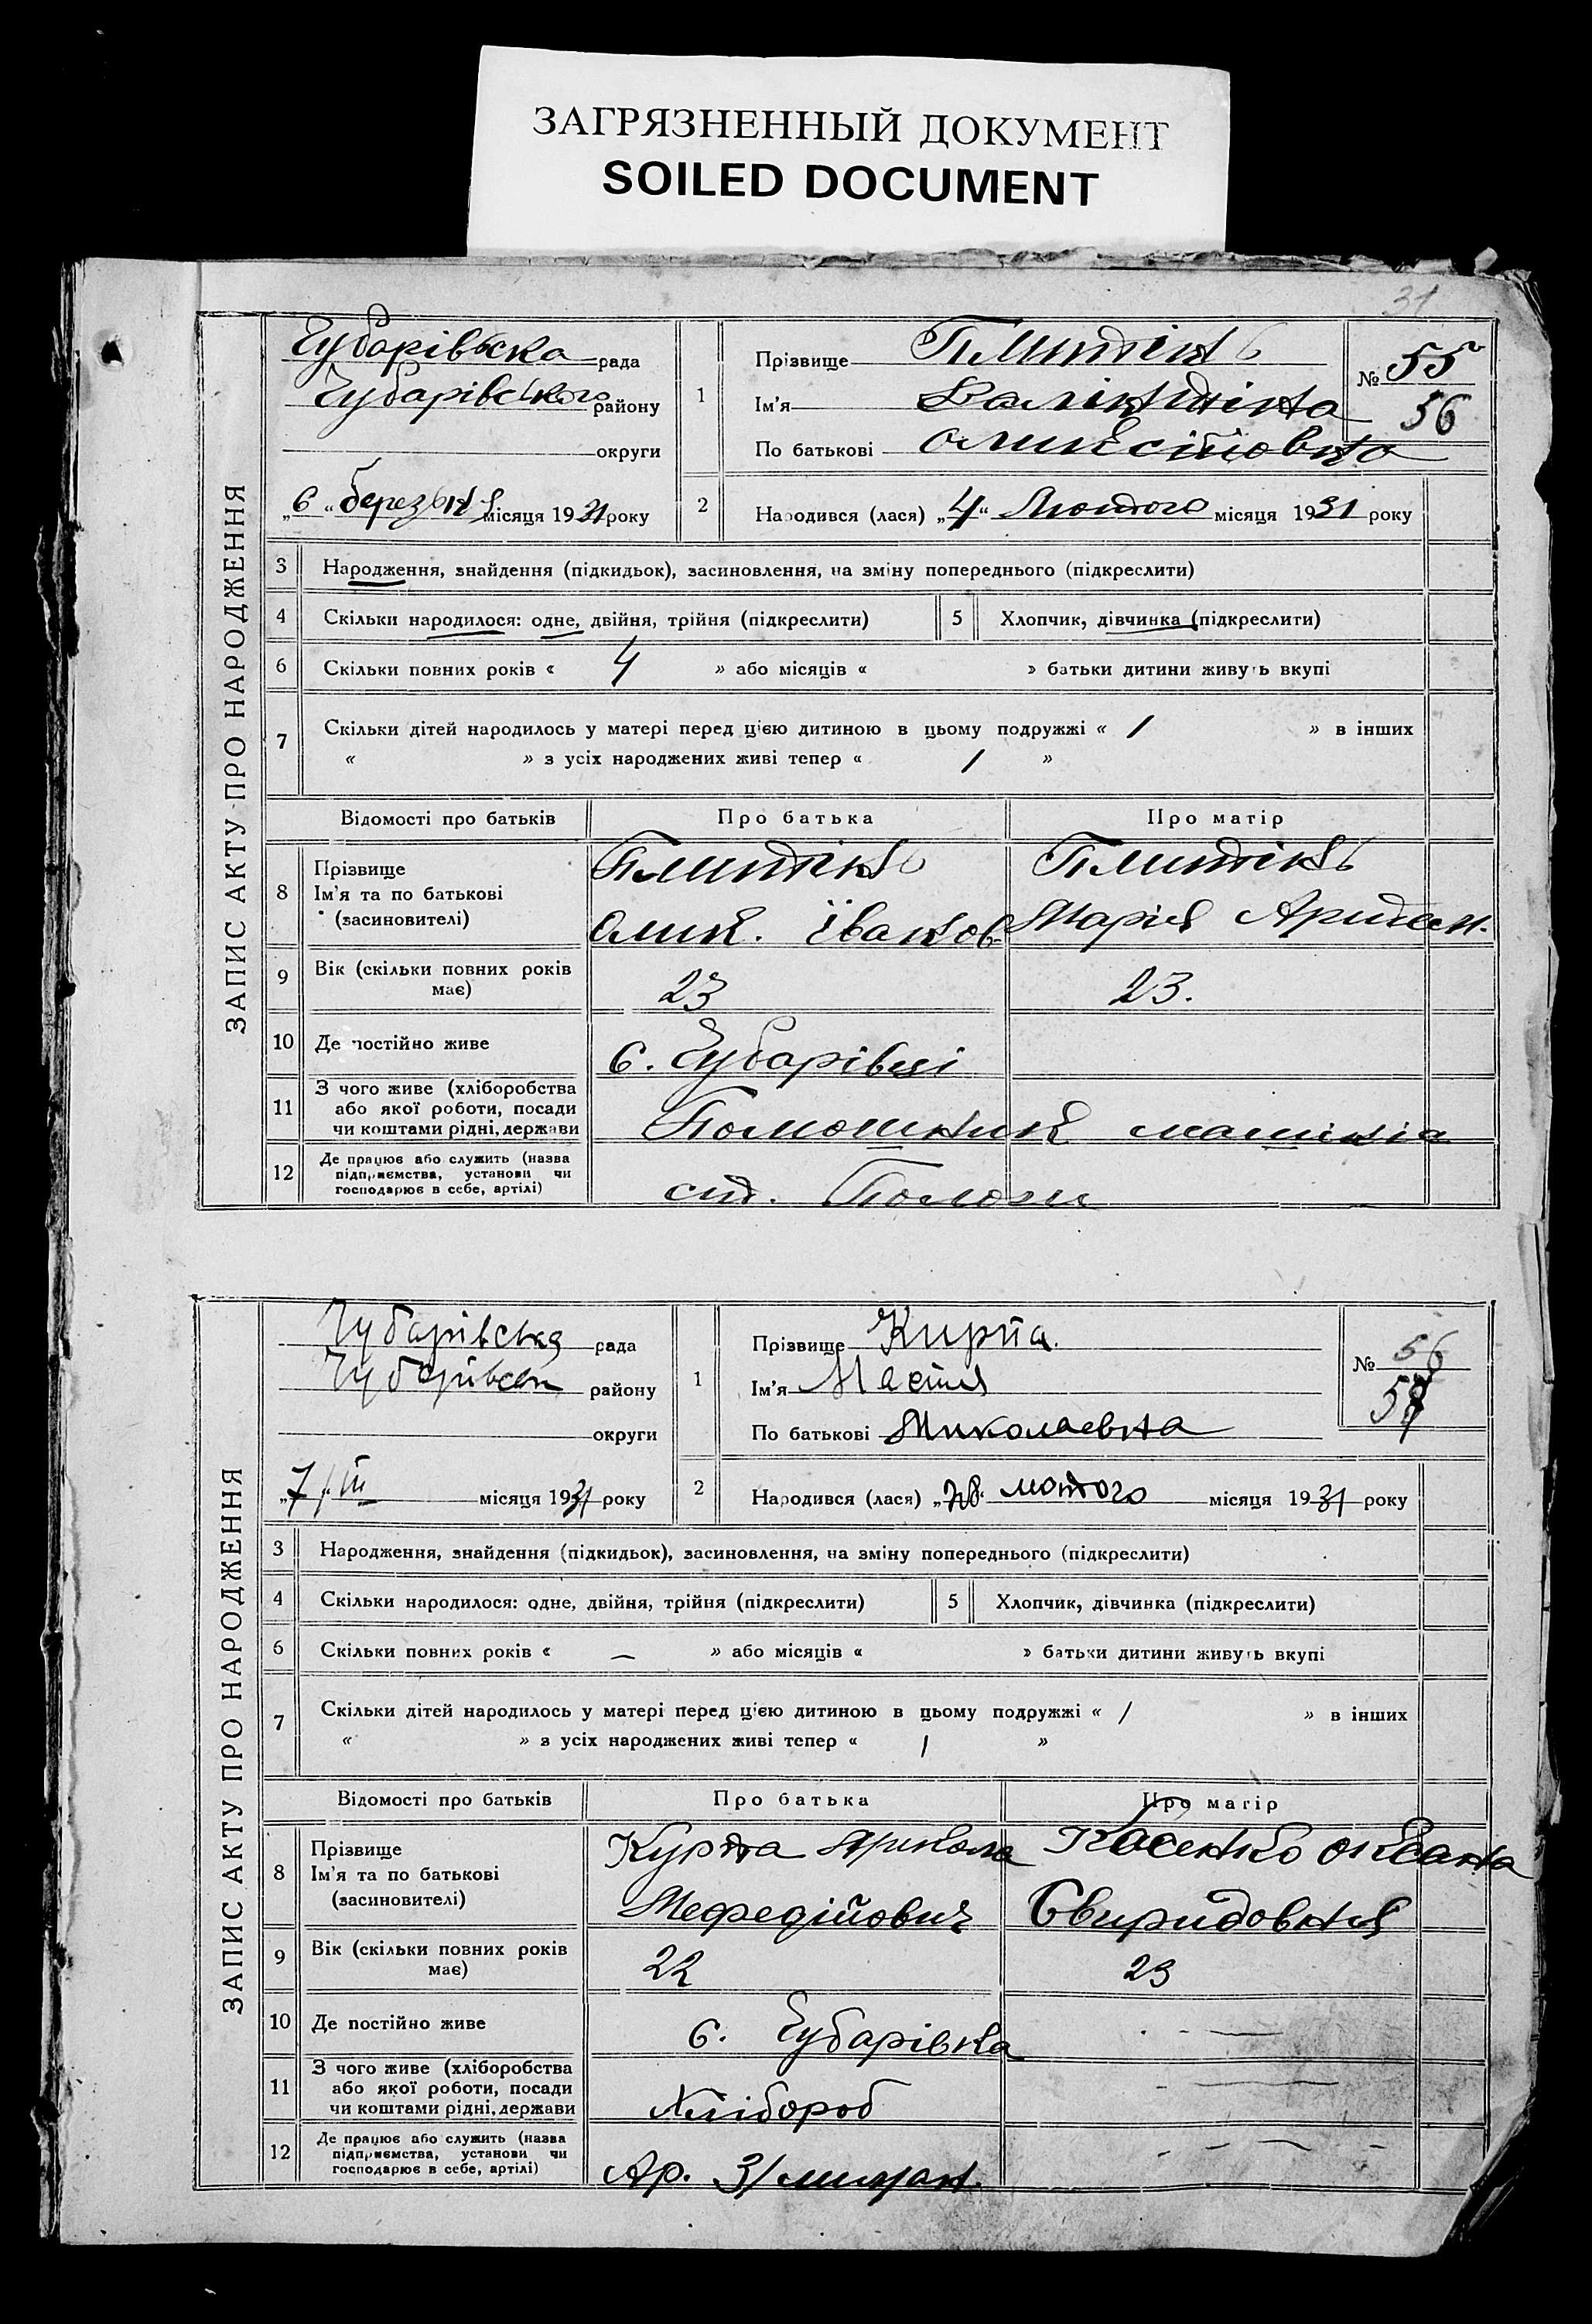 ЗАГРЯЗНЕННЫЙ ДОКУМЕНТ
SOILED DOCUMENT
31
ЗАПИС АКТУ ПРО НАРОДЖЕННЯ
Чубарівська рада
Чубарівського району
округи
„6“ березня місяця 1931 року
1
Прізвище
Ім'я
По батькові
№ 55
56
2
Народився (лася) „4“ Лютого місяця 1931 року
3 Народження, знайдення (підкидьок), засиновлення, на зміну попереднього (підкреслити)
4 Скільки народилося: одне, двійня, трійня (підкреслити) 5 Хлопчик, дівчинка (підкреслити)
6 Скільки повних років « 4 » або місяців « » батьки дитини живуть вкупі
7 Скільки дітей народилось у матері перед цією дитиною в цьому подружжі « 1 » в інших
« » з усіх народжених живі тепер « 1 »
Відомості про батьків Про батька Про матір
8 Прізвище
Ім'я та по батькові
(засиновителі)
Марія
9 Вік (скільки повних років має) 23 23.
10 Де постійно живе с. Чубарівці
11 З чого живе (хліборобства
або якої роботи, посади
чи коштами рідні, держави
Помошник машиніа
12 Де працює або служить (назва
підприємства, установи чи
господарює в себе, артілі)
ст. Пологи
ЗАПИС АКТУ ПРО НАРОДЖЕННЯ
Чубарівська рада
Чубарівськ району
округи
„7/III місяця 1931 року
1
Прізвище Кирпа.
Ім'я
По батькові Миколаевна
№ 56
57
2
Народився (лася) „28“ лютого місяця 1931 року
3 Народження, знайдення (підкидьок), засиновлення, на зміну попереднього (підкреслити)
4 Скільки народилося: одне, двійня, трійня (підкреслити) 5 Хлопчик, дівчинка (підкреслити)
6 Скільки повних років « — » або місяців « » батьки дитини живуть вкупі
7 Скільки дітей народилось у матері перед цією дитиною в цьому подружжі « 1 » в інших
« » з усіх народжених живі тепер « 1 »
Відомості про батьків Про батька Про матір
8 Прізвище
Ім'я та по батькові
(засиновителі)
Мефедійович Свиридовня
9 Вік (скільки повних років має) 22 23
10 Де постійно живе с. Чубарівка
11 З чого живе (хліборобства
або якої роботи, посади
чи коштами рідні, держави
Хлібороб
12 Де працює або служить (назва
підприємства, установи чи
господарює в себе, артілі)
Ар.